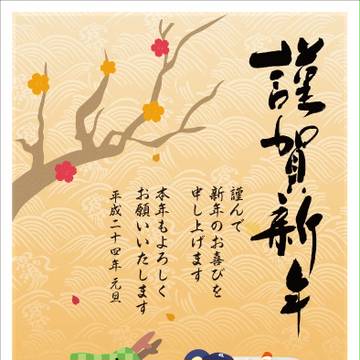 謹賀新年
謹んで
新年のお喜びを
申し上げます
本年もよろしく
お願いいたします
平成二十四年 元旦